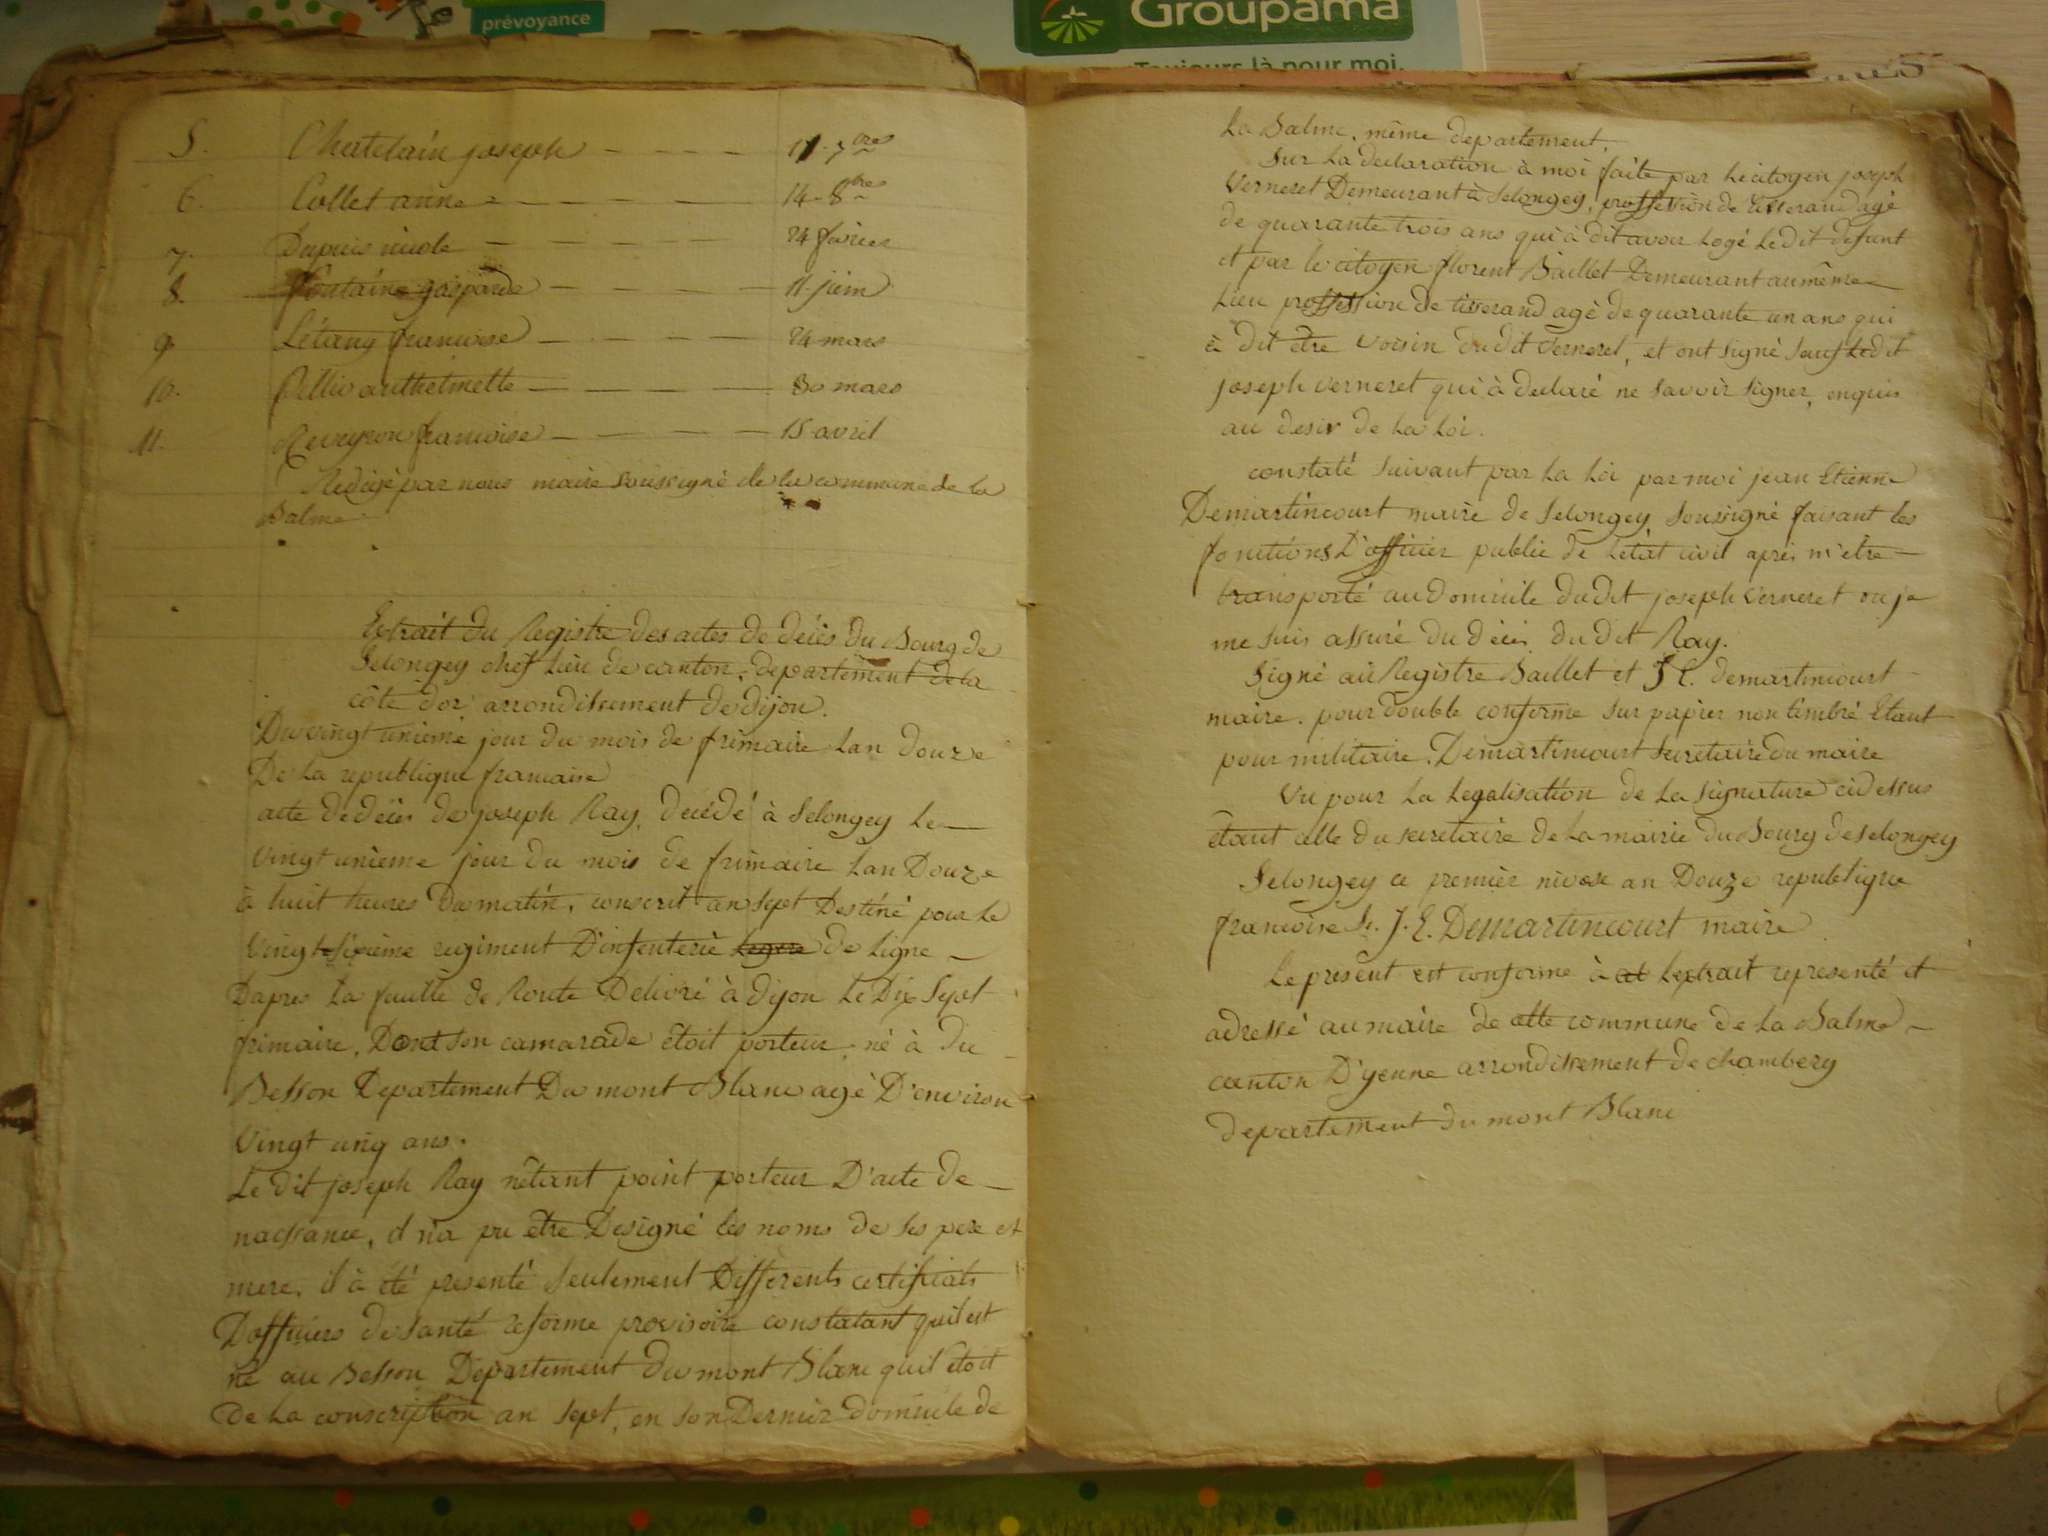 prévoyance
Groupama
Toujours là pour moi.
5. Chatelain joseph - - - 11. 7bres
6. Collet anne - - - - 14. 8bres
7. Dupuis - - - 24 fevrier
8. Fontaine gasparde - - - 11. juin
9. Létang francoise - - - - 24 mars
10. anthelmette - - - - 30 mars
11. Reveyron francoise - - - 15 avril
Redigé par nous maire soussigné de la commune de la
Balme
Extrait du Registre des actes de décès du Bourg de
Selongey chef Lieu de canton, departement de la
côte d'or arrondissement de dijon.
Du vingt unieme jour du mois de frimaire Lan douze
De la republique francaise
acte de deces de joseph Ray, decédé à Selongey le
vingt unieme jour du mois de frimaire Lan Douze
à huit heures du matin, conscrit an sept Destiné pour le
vingt sixième regiment D'infenterie legere de Ligne
Dapres la feuille de Route Delivré à dijon Le Dix Sept
frimaire, Dont son camarade étoit porteur, né à Du
Besson Departement Du mont Blanc agé D'environ
vingt cinq ans.
Le dit joseph Ray nêtant point porteur D'acte de
naissance, il n'a pu être Designé les noms de ses pere et
mere, il à été presenté seulement Differents certificats
D'officiers de santé reforme provisoire constatant quil est
né au Besson Departement du mont Blanc quil étoit
De la conscription an sept, en son Dernier domicile de
La Balme, même departement.
Sur la declaration à moi faite par Le citogen joseph
Verneret Demeurant à Selongey, proffession de tisserand agé
de quarante trois ans qui à dit avoir logé Le dit defunt
et par le citogen florent Baillet Demeurant au même
Lieu proffession de tisserand agé de quarante un ans qui
à dit être voisin du dit Verneret, et ont signé sauf Ledit
joseph verneret qui à declaré ne savoir signer, enquis
au desir de la Loi.
constaté suivant par La Loi par moi jean Etienne
Demartincourt maire de Selongey soussigné faisant les
fonctions D'officier public de Létat civil après m'être
transporté au Domicile du dit joseph Verneret ou je
me suis assuré du décès du dit Ray.
Signé au Registre Baillet et J E. demartincourt
maire. pour double conforme sur papier non timbré Etant
pour militaire, Demartincourt Secretaire du maire
Vu pour La legalisation de La Signature ci dessus
étant celle du secretaire de La mairie du Bourg de selongey
Selongey ce premier nivose an Douze republique
francoise J. E. Demartincourt maire
Le present est conforme à Lextrait representé et
adressé au maire de cette commune de La Balme
canton D'yenne arrondissement de chambery
departement du mont Blanc